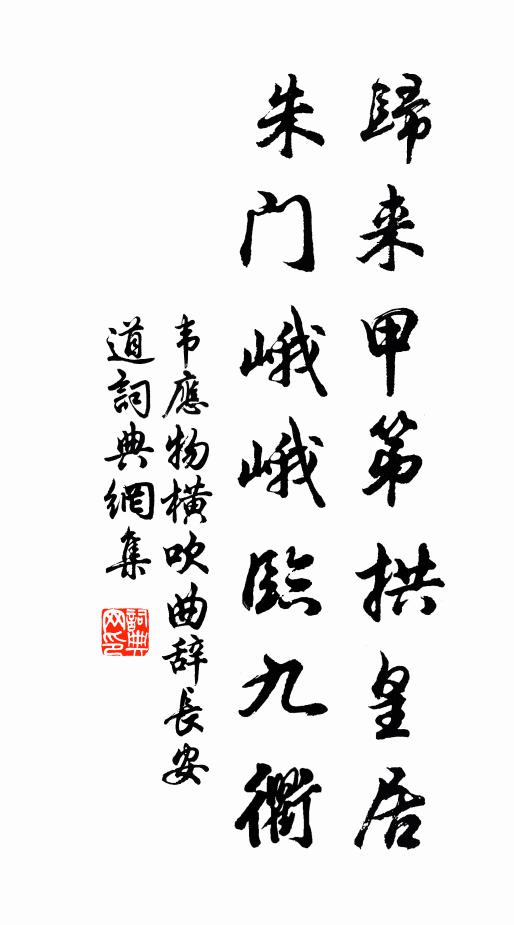 歸来甲第拱皇居
朱門峨峨臨九衢
韦應物橫吹曲辞長安
道詞典網集
詞典
网印